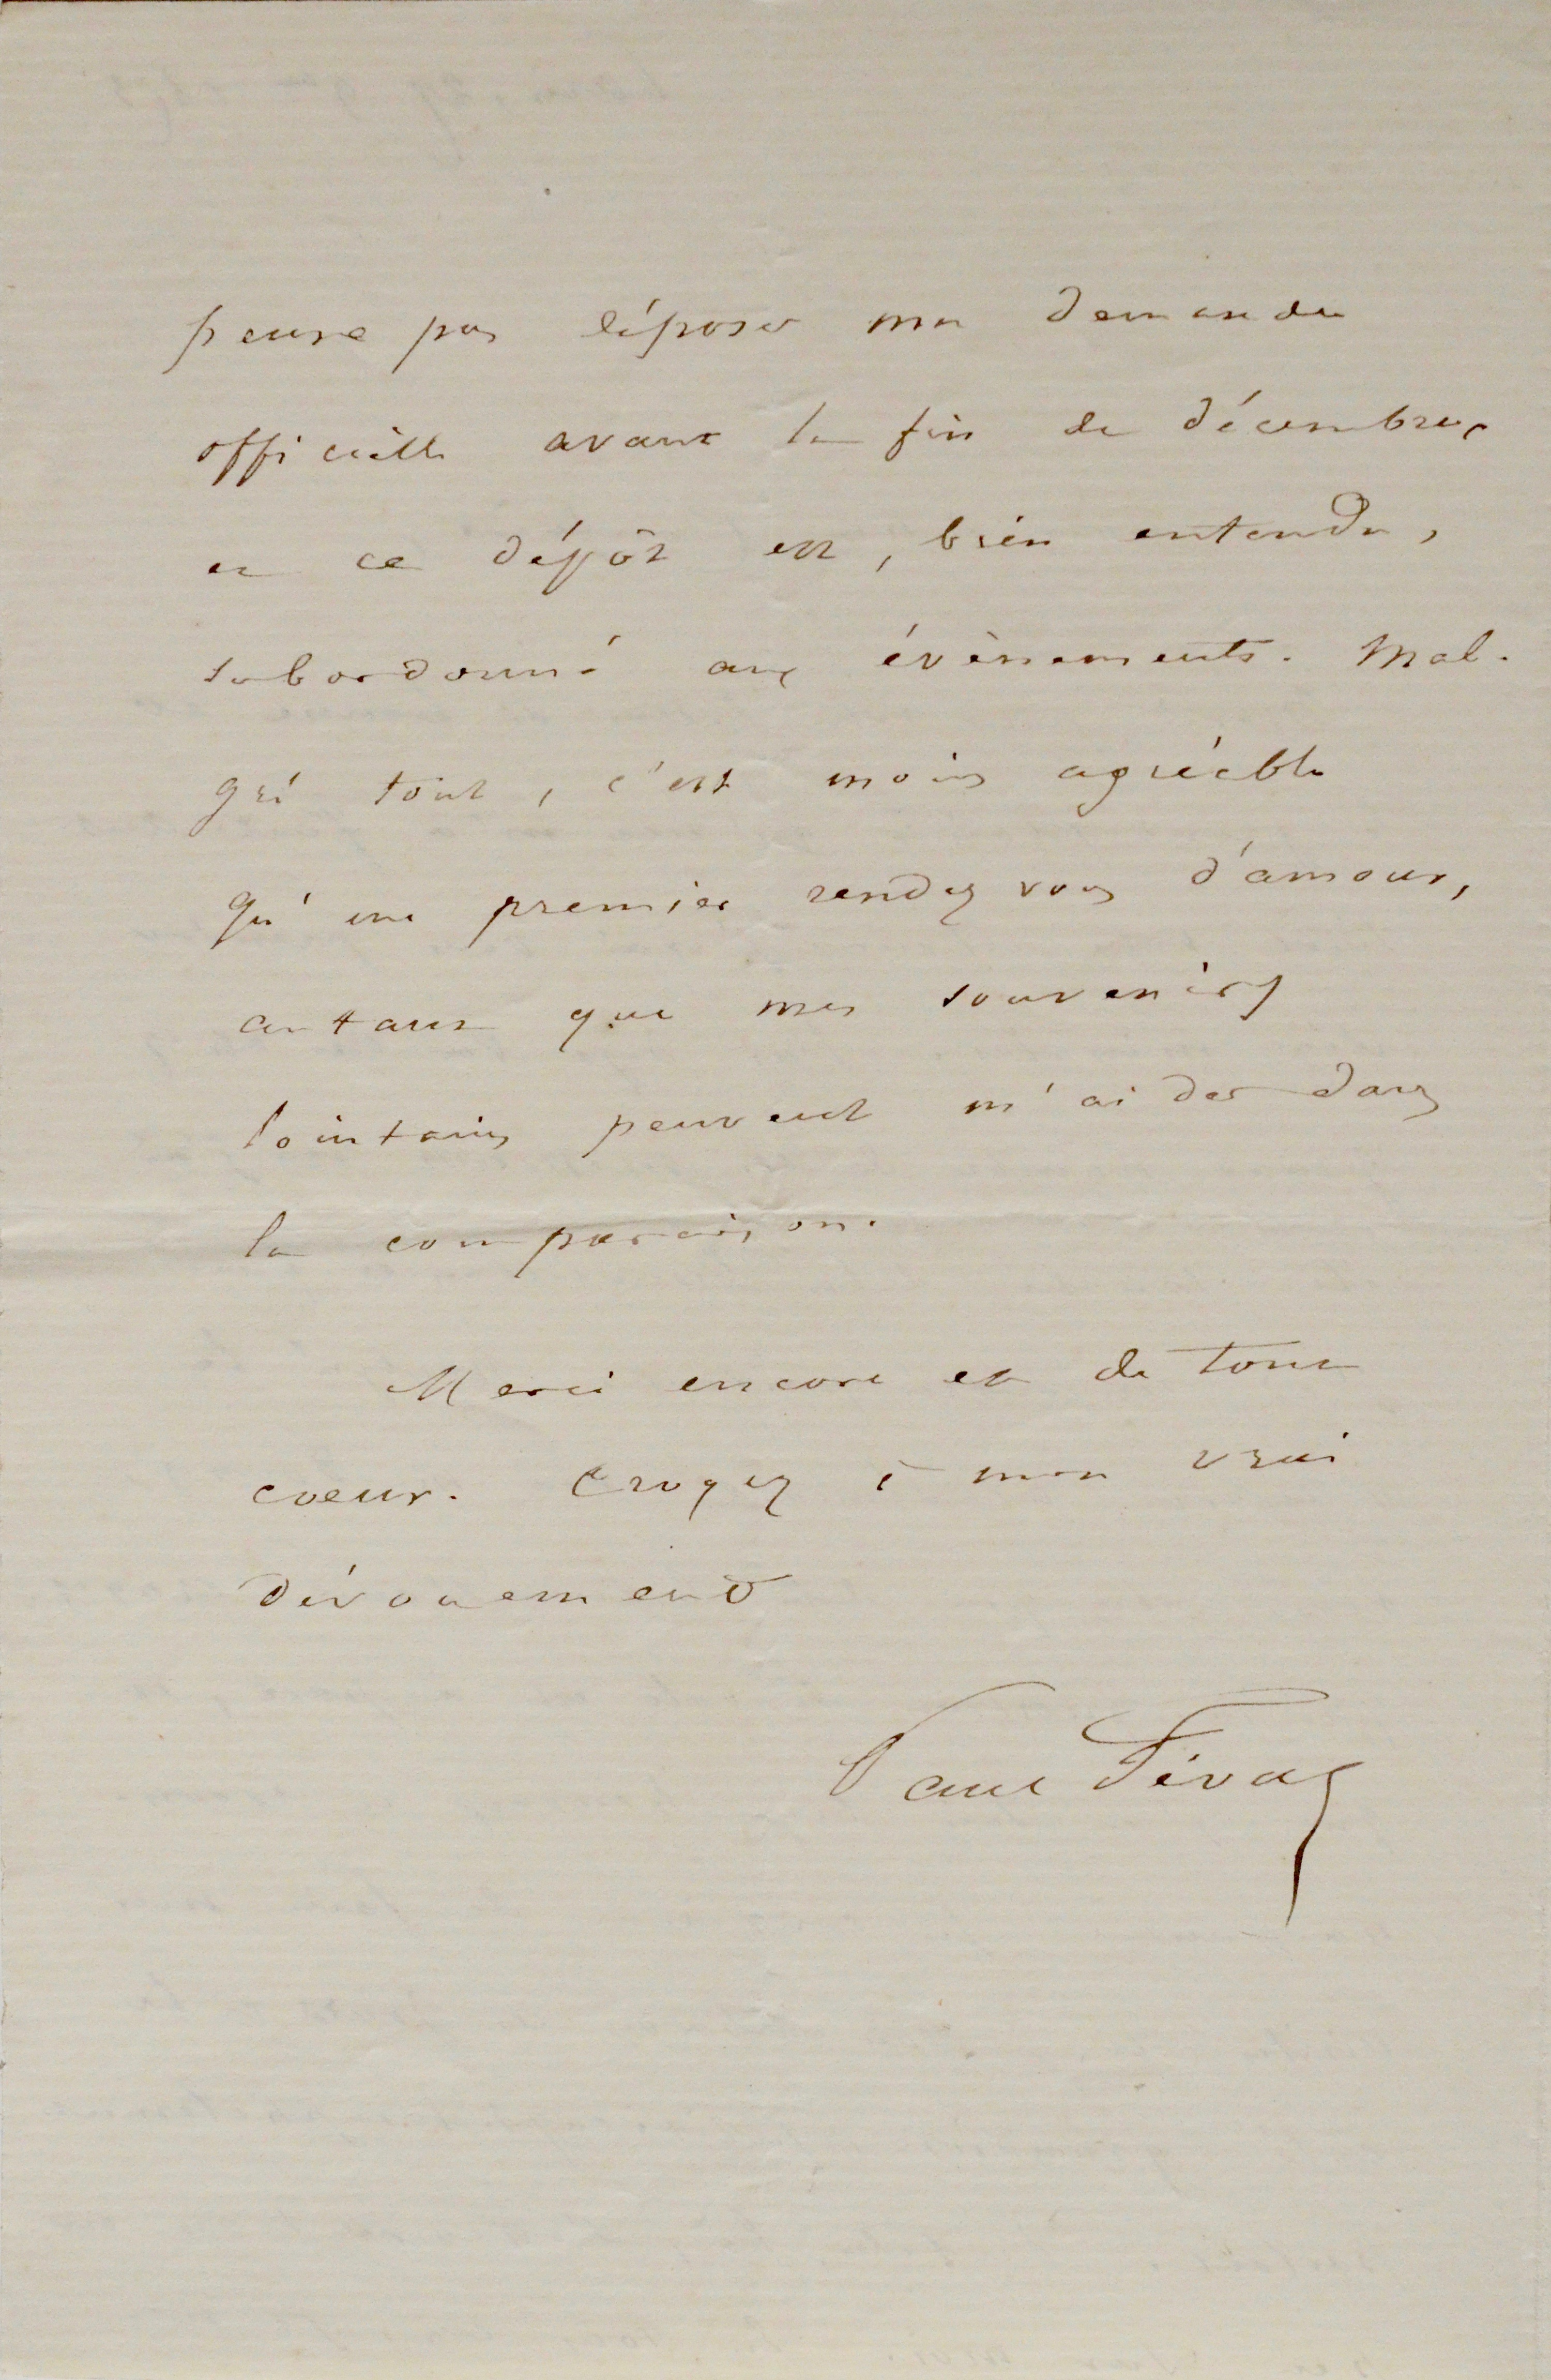 pense pas déposer ma demande
officielle avant la fin de décembre,
et ce dépôt est, bien entendu,
subordonné aux évènements. Mal-
gré tout, c'est moins agréable
qu'un premier rendez vous d'amour,
autant que mes souvenirs
lointains peuvent m'aider dans
la comparaison.
Merci encore et de tout
coeur. Croyez à mon vrai
dévouement
Paul Féval